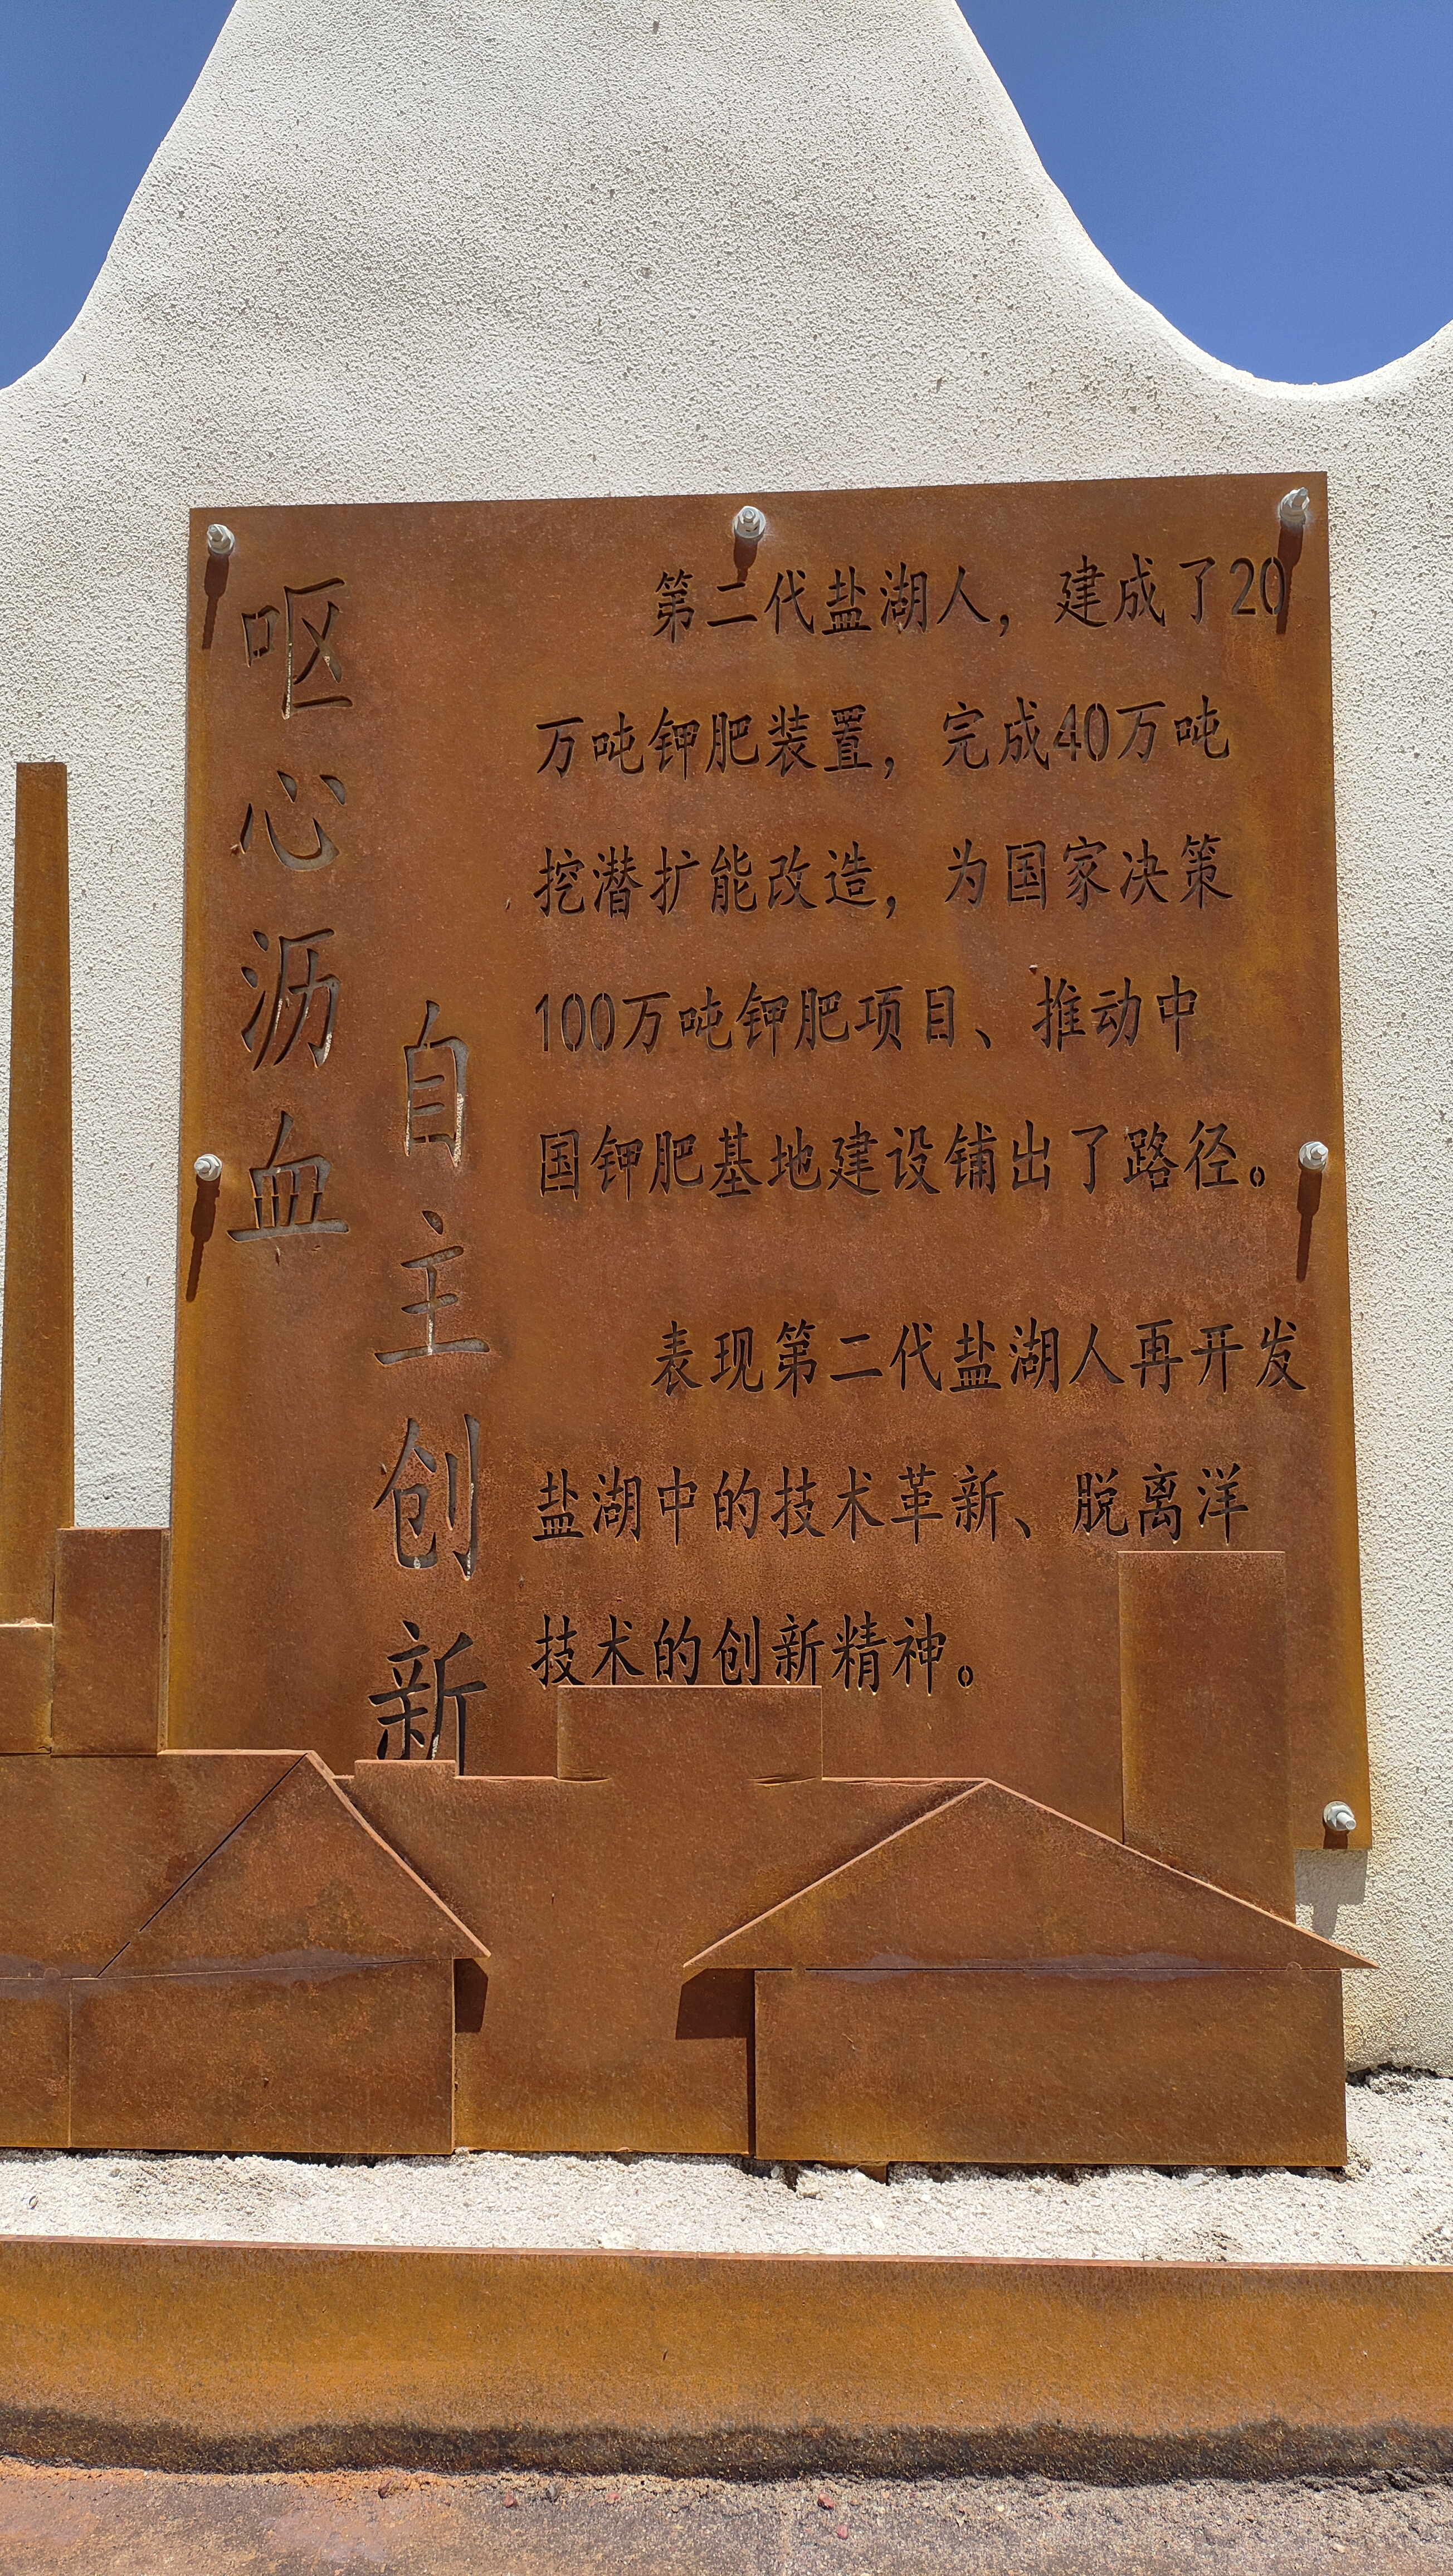 呕心沥血
自主创新
第二代盐湖人，建成了20
万吨钾肥装置，完成40万吨
挖潜扩能改造，为国家决策
100万吨钾肥项目、推动中
国钾肥基地建设铺出了路径。
表现第二代盐湖人再开发
盐湖中的技术革新、脱离洋
技术的创新精神。